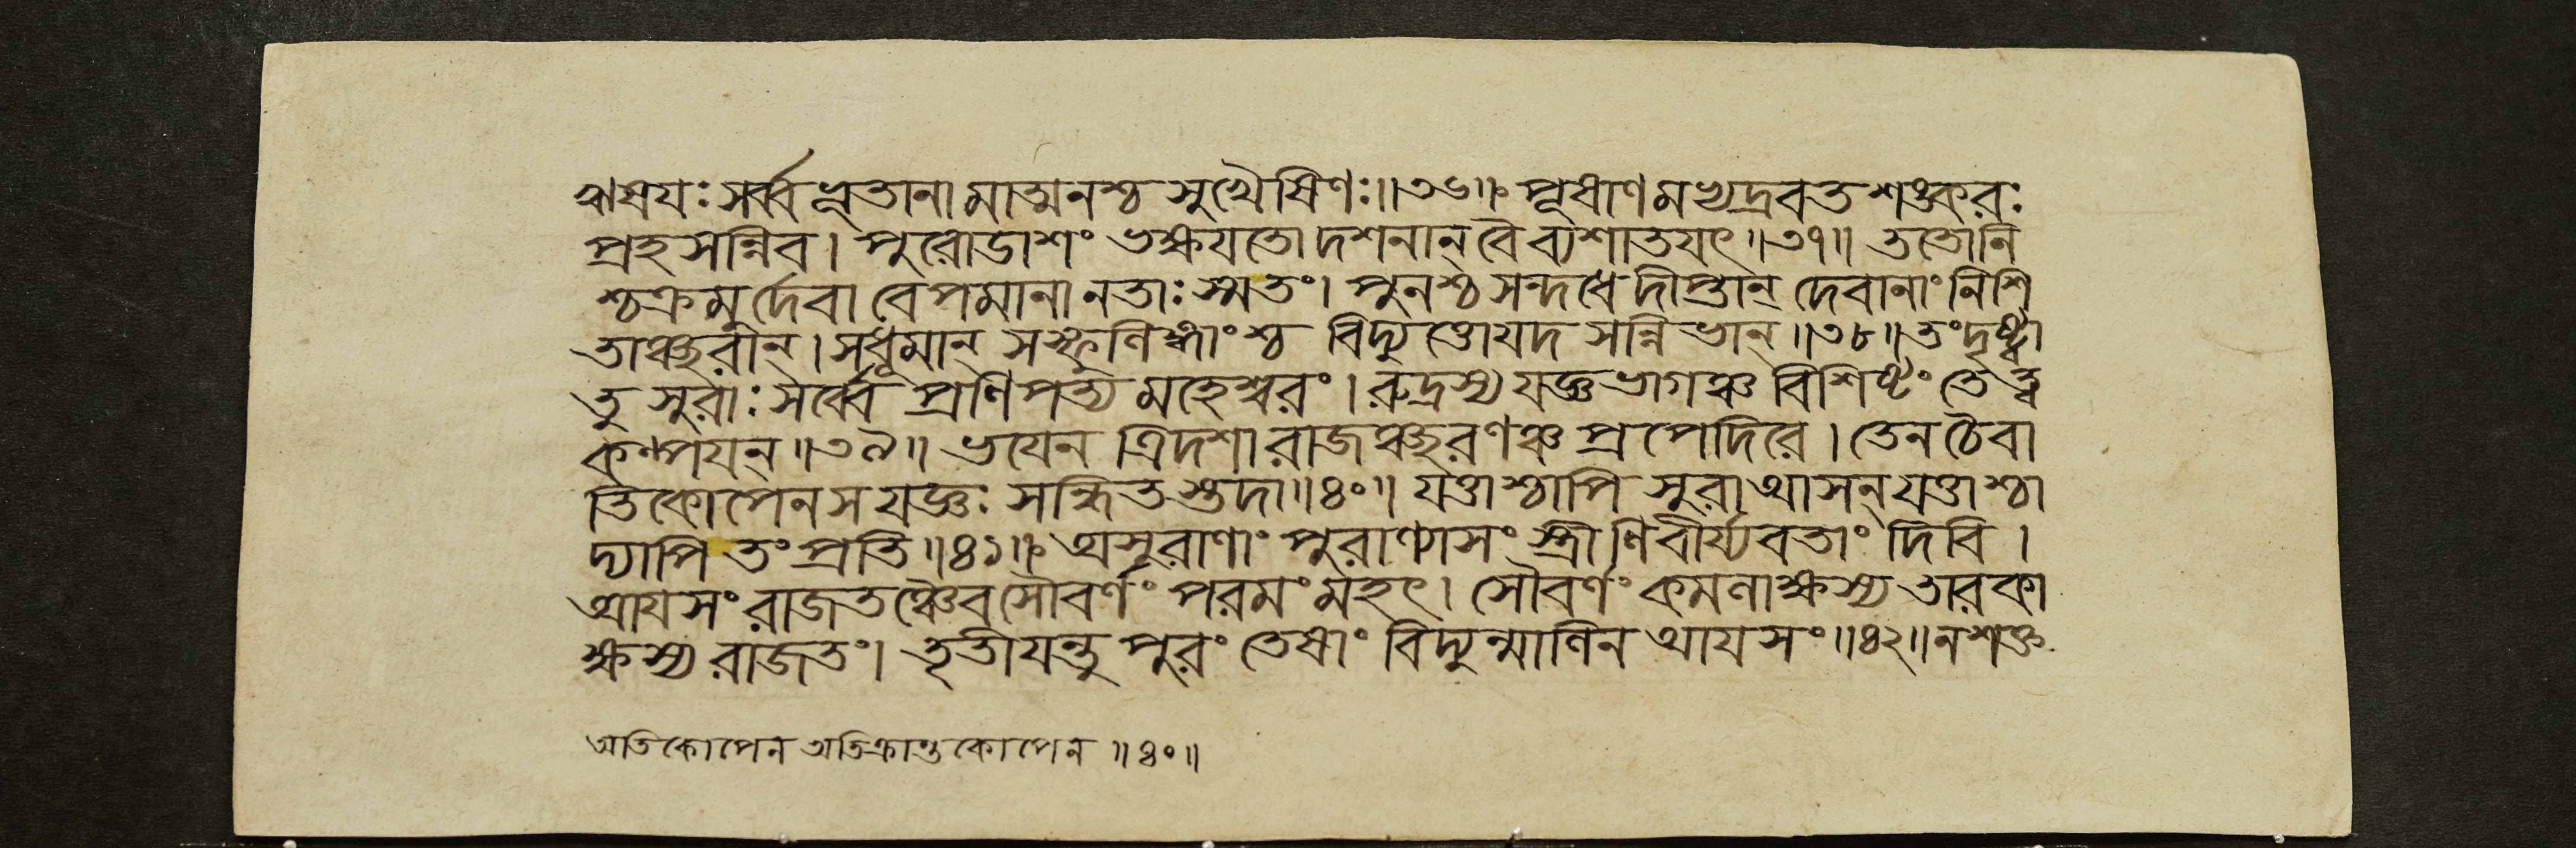 ঋষযঃ সর্ব্বভূতানামাত্মনশ্চ সুখৈষিণঃ॥৩৬॥ পূষাণমভ্যদ্রবত শঙ্করঃ
প্রহসন্নিব। পুরোডাশং ভক্ষযতো দশনান্ বৈ ব্যশাতযৎ॥৩৭॥ ততো নি
শ্চক্রমুর্দেবা বেপমানা নতাঃ স্মতং। পুনশ্চ সন্দধে দীপ্তান্ দেবানাং নিশি
তাঞ্ছরান্। সধূমান্ সস্ফুলিঙ্গাংশ্চ বিদ্যুত্তোযদসন্নিভান্॥৩৮॥ তং দৃষ্ট্বা
তু সুরাঃ সর্ব্বে প্রণিপত্য মহেশ্বরং। রুদ্রস্য যজ্ঞভাগঞ্চ বিশিষ্টং তে ত্ব
কল্পযন্॥৩৯॥ ভযেন ত্রিদশা রাজঞ্ছরণঞ্চ প্রপেদিরে। তেন চৈবা
তিকোপেন স যজ্ঞঃ সন্ধিতস্তদা॥৪০॥ যত্তাশ্চাপি সুরা আসন্ যত্তাশ্চা
দ্যাপি তং প্রতি॥৪১॥ অসুরাণাং পুরাণ্যাসং স্ত্রীণি বীর্য্যবতাং দিবি।
আযসং রাজতঞ্চৈব সৌবর্ণং পরমং মহৎ। সৌবর্ণং কমলাক্ষস্য তারকা
ক্ষস্য রাজতং। তৃতীযন্তু পুরং তেষাং বিদ্যুন্মালিন আযসং॥৪২॥ ন শক্ত
অতিকোপেন অতিক্রান্তকোপেন॥৪০॥